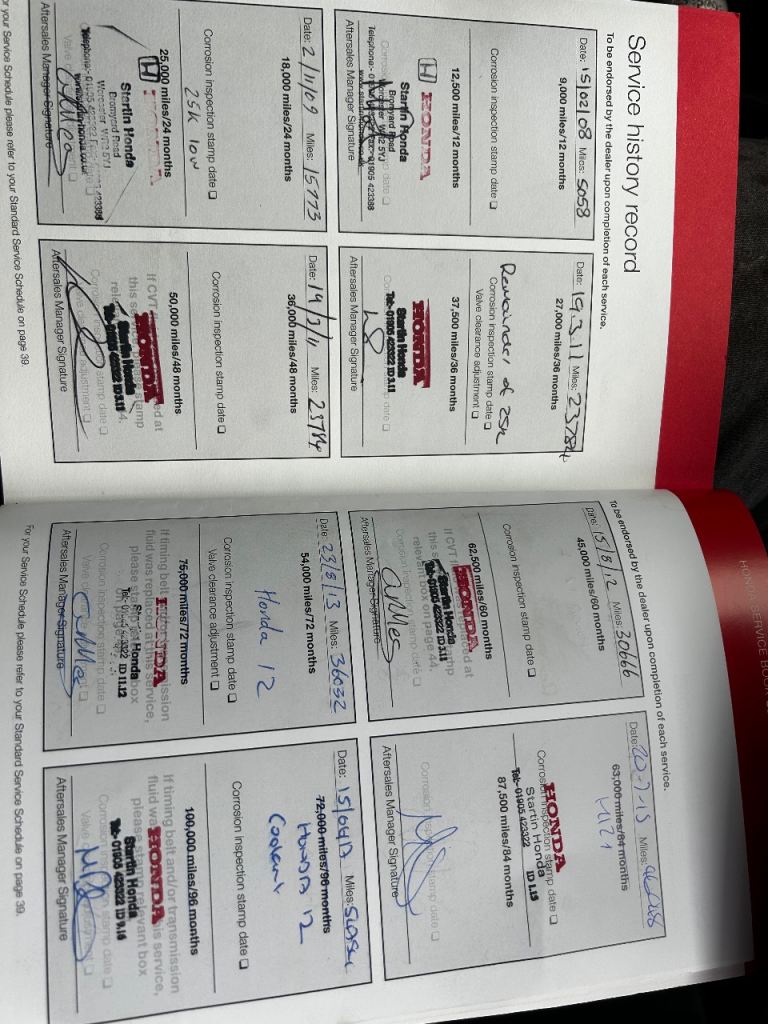 Service history record
To be endorsed by the dealer upon completion of each service.
Date: 15/02/08 Miles: 5058
9,000 miles/12 months
Corrosion inspection stamp date
12,500 miles/12 months
HONDA
Startin Honda
Bromyard Road
Worcester WR2 5YJ
Aftersales Manager Signature
Date: 2/11/09 Miles: 15773
18,000 miles/24 months
Corrosion inspection stamp date
25k low
25,000 miles/24 months
Startin Honda
Bromyard Road
Worcester WR2 5YJ
Aftersales Manager Signature
Date: 19.3.11 Miles: 23784
27,000 miles/36 months
Remainder of 25k
Corrosion inspection stamp date
Valve clearance adjustment
37,500 miles/36 months
HONDA
Startin Honda
Tel: 01905 423322 ID 3.11
Aftersales Manager Signature
Date: 19/3/11 Miles: 23784
36,000 miles/48 months
Corrosion inspection stamp date
50,000 miles/48 months
HONDA
Startin Honda
Tel: 01905 423322 ID 3.11
Aftersales Manager Signature
For your Service Schedule please refer to your Standard Service Schedule on page 39.
HONDA SERVICE BOOK
To be endorsed by the dealer upon completion of each service.
Date: 15/8/12 Miles: 30666
45,000 miles/60 months
Corrosion inspection stamp date
62,500 miles/60 months
HONDA
Startin Honda
Tel: 01905 423322 ID 3.11
relevant box on page 44.
Aftersales Manager Signature
Date: 23/8/13 Miles: 36032
54,000 miles/72 months
Corrosion inspection stamp date
Valve clearance adjustment
Honda 12
75,000 miles/72 months
If timing belt
fluid was replaced at this service,
HONDA
Startin Honda
ID 11.12
Aftersales Manager Signature
Date: 20-7-15 Miles:
63,000 miles/84 months
Corrosion inspection stamp date
HONDA
Startin Honda
Tel: 01905 423322 ID 1.15
87,500 miles/84 months
Aftersales Manager Signature
Date: Miles:
72,000 miles/96 months
Honda 12
Coolant
Corrosion inspection stamp date
100,000 miles/96 months
If timing belt and/or transmission
HONDA
Startin Honda
Tel: 01905 423322 ID 9.16
Aftersales Manager Signature
For your Service Schedule please refer to your Standard Service Schedule on page 39.